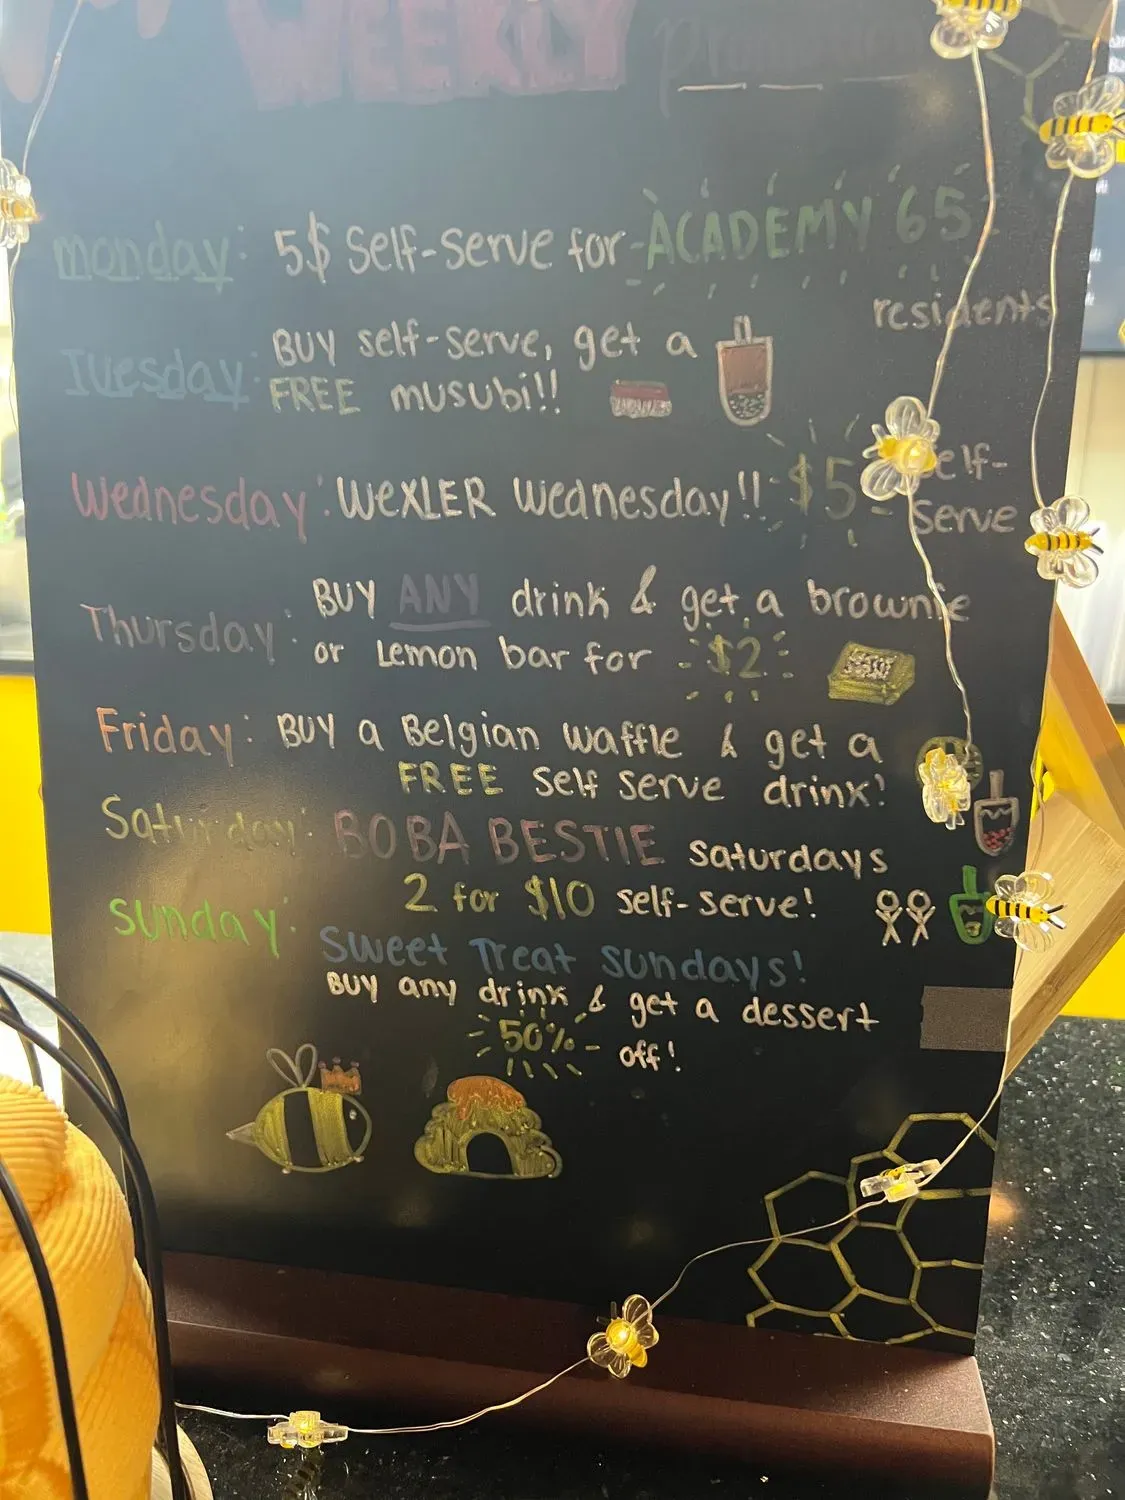 WEEKLY
monday: 5$ Self-Serve for ACADEMY 65
residents
Tuesday: BUY self-serve, get a
FREE musubi!!
Wednesday: WEXLER Wednesday!! $5 Self-
Serve
Thursday: BUY ANY drink & get a brownie
or Lemon bar for $2
Friday: BUY a Belgian waffle & get a
FREE Self Serve drink!
Saturday: BOBA BESTIE saturdays
2 for $10 self-serve!
sunday: Sweet Treat Sundays!
BUY any drink & get a dessert
50% off!